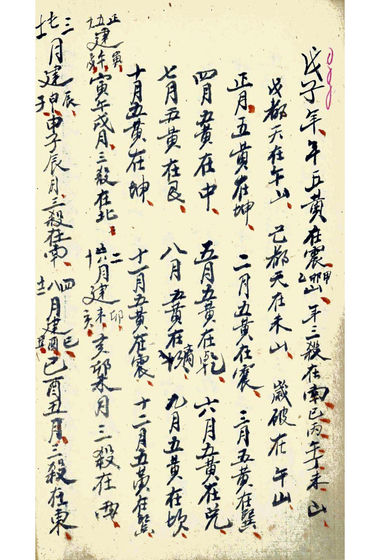 戊子年年五黄在震甲卯乙山 年三殺在南巳丙午丁未山
戊都天在午山 己都天在未山 歲破在午山
正月五黄在坤 二月五黄在震 三月五黄在巽
四月五黄在中 五月五黄在乾 六月五黄在兌
七月五黄在艮 八月五黄在離 九月五黄在坎
十月五黄在坤 十一月五黄在震 十二月五黄在巽
正五九建寅午戌 寅午戌月三殺在北 二六十月建卯未亥 亥卯未月三殺在西
三七十一月建辰申子 申子辰月三殺在南 四八十二月建巳酉丑 巳酉丑月三殺在東